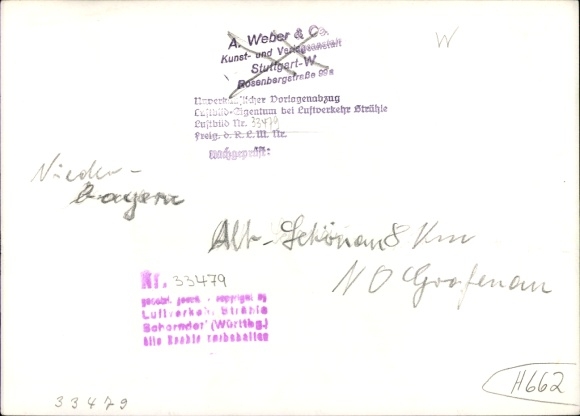 A. Weber & Co.
Kunst- und Verlagsanstalt
Stuttgart-W
Rosenbergstraße 99a
W
Unverkäuflicher Vorlagenabzug
Luftbild-Eigentum bei Luftverkehr Strähle
Luftbild Nr. 33479
Freig. d. R. L. M. Nr.
Nachgeprüft:
Nieder-
bayern
Alt-Schönau 8 Km
NO Grafenau
Nr. 33479
gesetzl. gesch. - copyright by
Luftverkehr Strähle
Schorndorf (Württbg.)
Alle Rechte vorbehalten
33479
H662